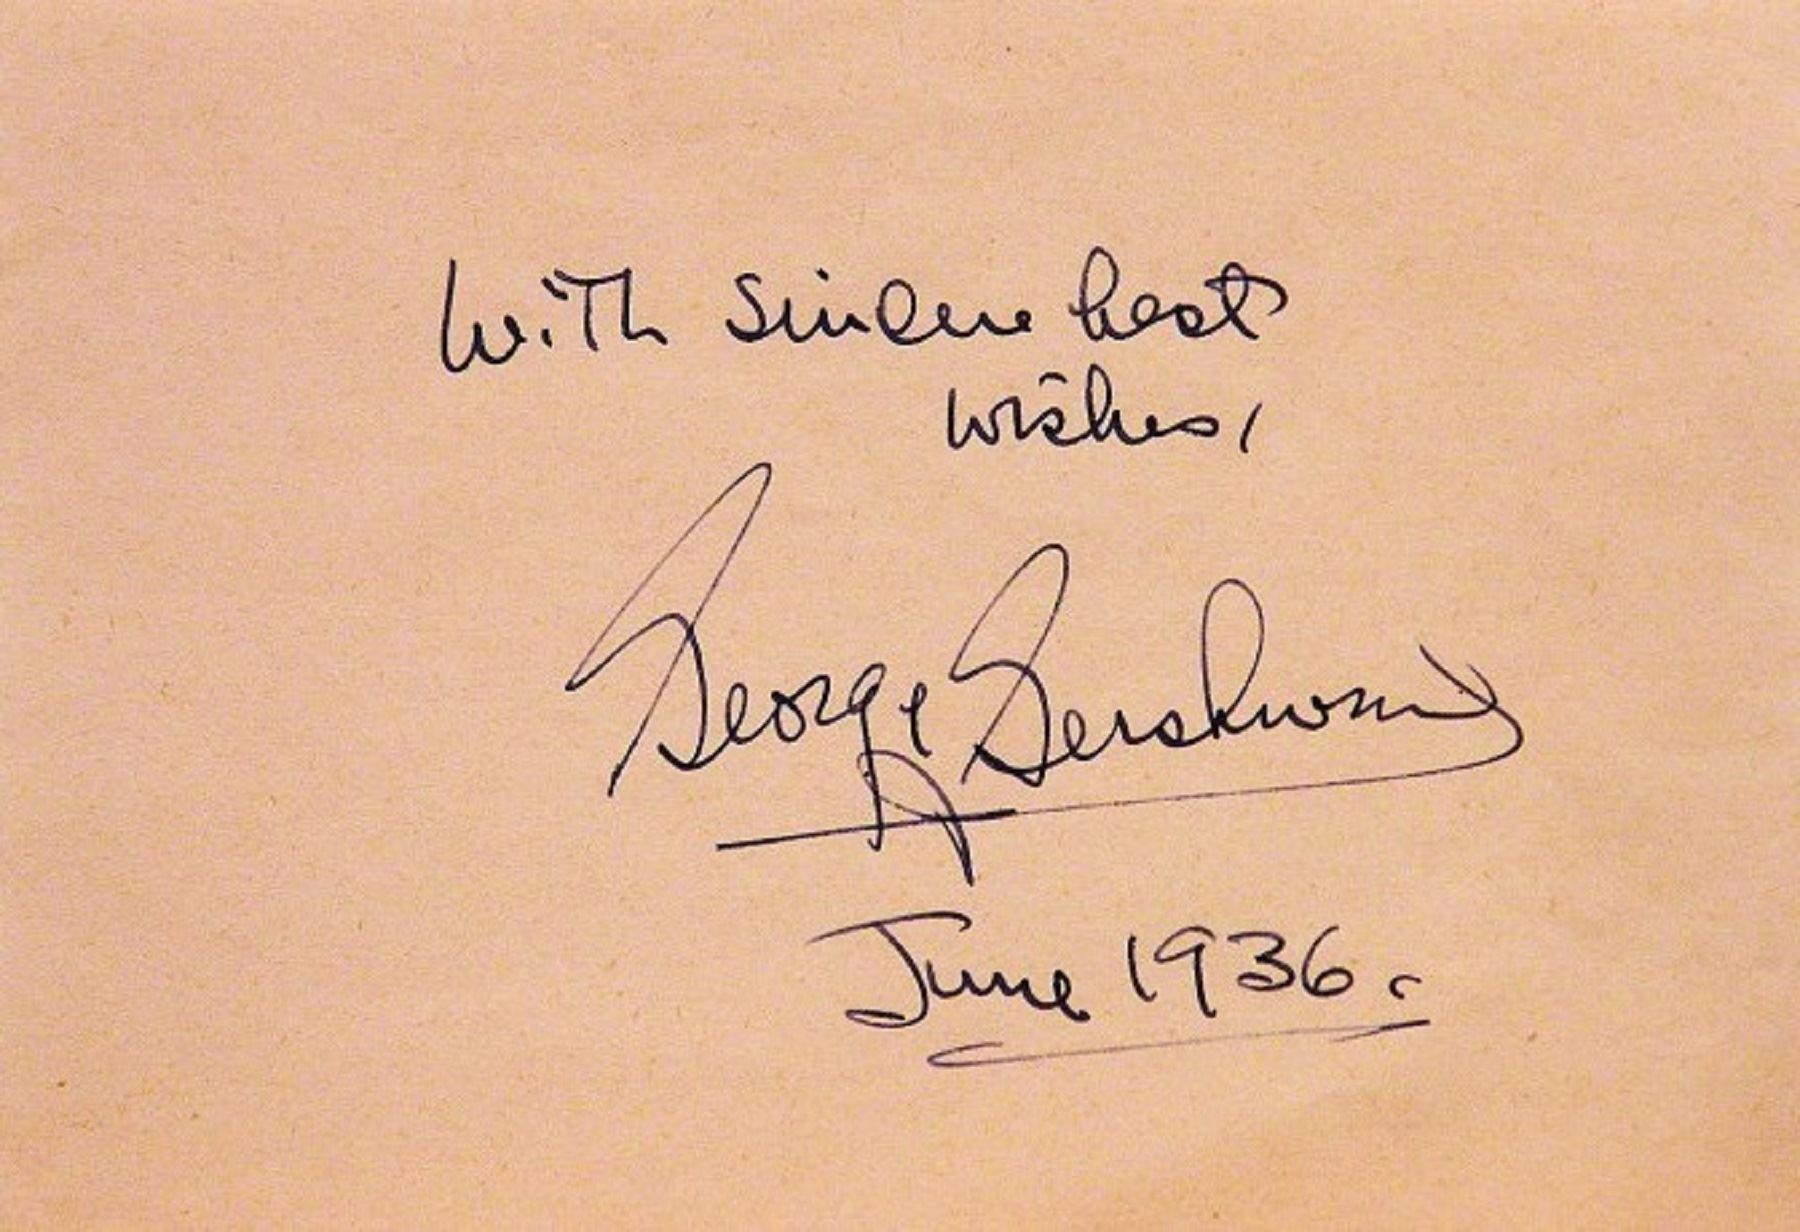 With sincere best
wishes,
George Gershwin
June 1936.